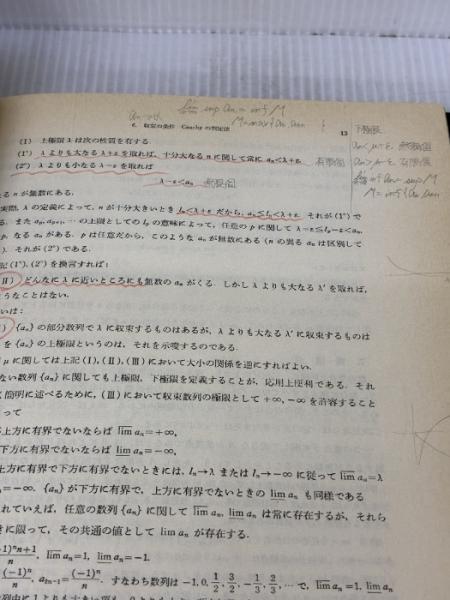 6. 収束の条件 Cauchyの判定法
13
(I) 上極限 λ は次の性質を有する.
(1°) λ よりも大なる λ+ε を取れば, 十分大なる n に関して常に aₙ<λ+ε.
(2°) λ よりも小なる λ−ε を取れば
λ−ε<aₙ
なる n が無数にある.
実際, λ の定義によって, n が十分大きいとき lₙ<λ+ε だから, aₙ≦lₙ<λ+ε. それが (1°) で
る. また の上限としての の意味によって, 任意の p に関して
なる aₙ がある. p は任意だから, このような aₙ が無数にある (n の異る aₙ は区別して
). それが (2°) である.
記 (1°), (2°) を換言すれば:
II) どんなに λ に近いところにも無数の aₙ がくる. しかし λ よりも大なる λ′ を取れば,
うなことはない.
いは:
) {aₙ} の部分数列で λ に収束するものはあるが, λ よりも大なる λ′ に収束するものは
を {aₙ} の上極限というのは, それを示唆するのである.
μ に関しては上記 (I), (II), (III) において大小の関係を逆にすればよい.
ない数列 {aₙ} に関しても上極限, 下極限を定義することが, 応用上便利である. それ
簡明に述べるために, (III) において収束数列の極限として +∞, −∞ を許容すること
って
上方に有界でないならば lim̅ aₙ=+∞,
下方に有界でないならば lim̲ aₙ=−∞.
上方に有界で下方に有界でないときには, lₙ→λ または lₙ→−∞ に従って lim̅ aₙ=λ
=−∞. {aₙ} が下方に有界で, 上方に有界でないときの lim̲ aₙ も同様である
れていえば, 任意の数列 {aₙ} に関して lim̅ aₙ, lim̲ aₙ は常に存在するが, それら
きに限って, その共通の値として lim aₙ が存在する.
lim̅ aₙ=1, lim̲ aₙ=−1.
すなわち数列は −1, 0, 1/2, 3/2, −1/3, 2/3, … で, lim̅ aₙ=1, lim̲ aₙ
無数個
有限個
下極限